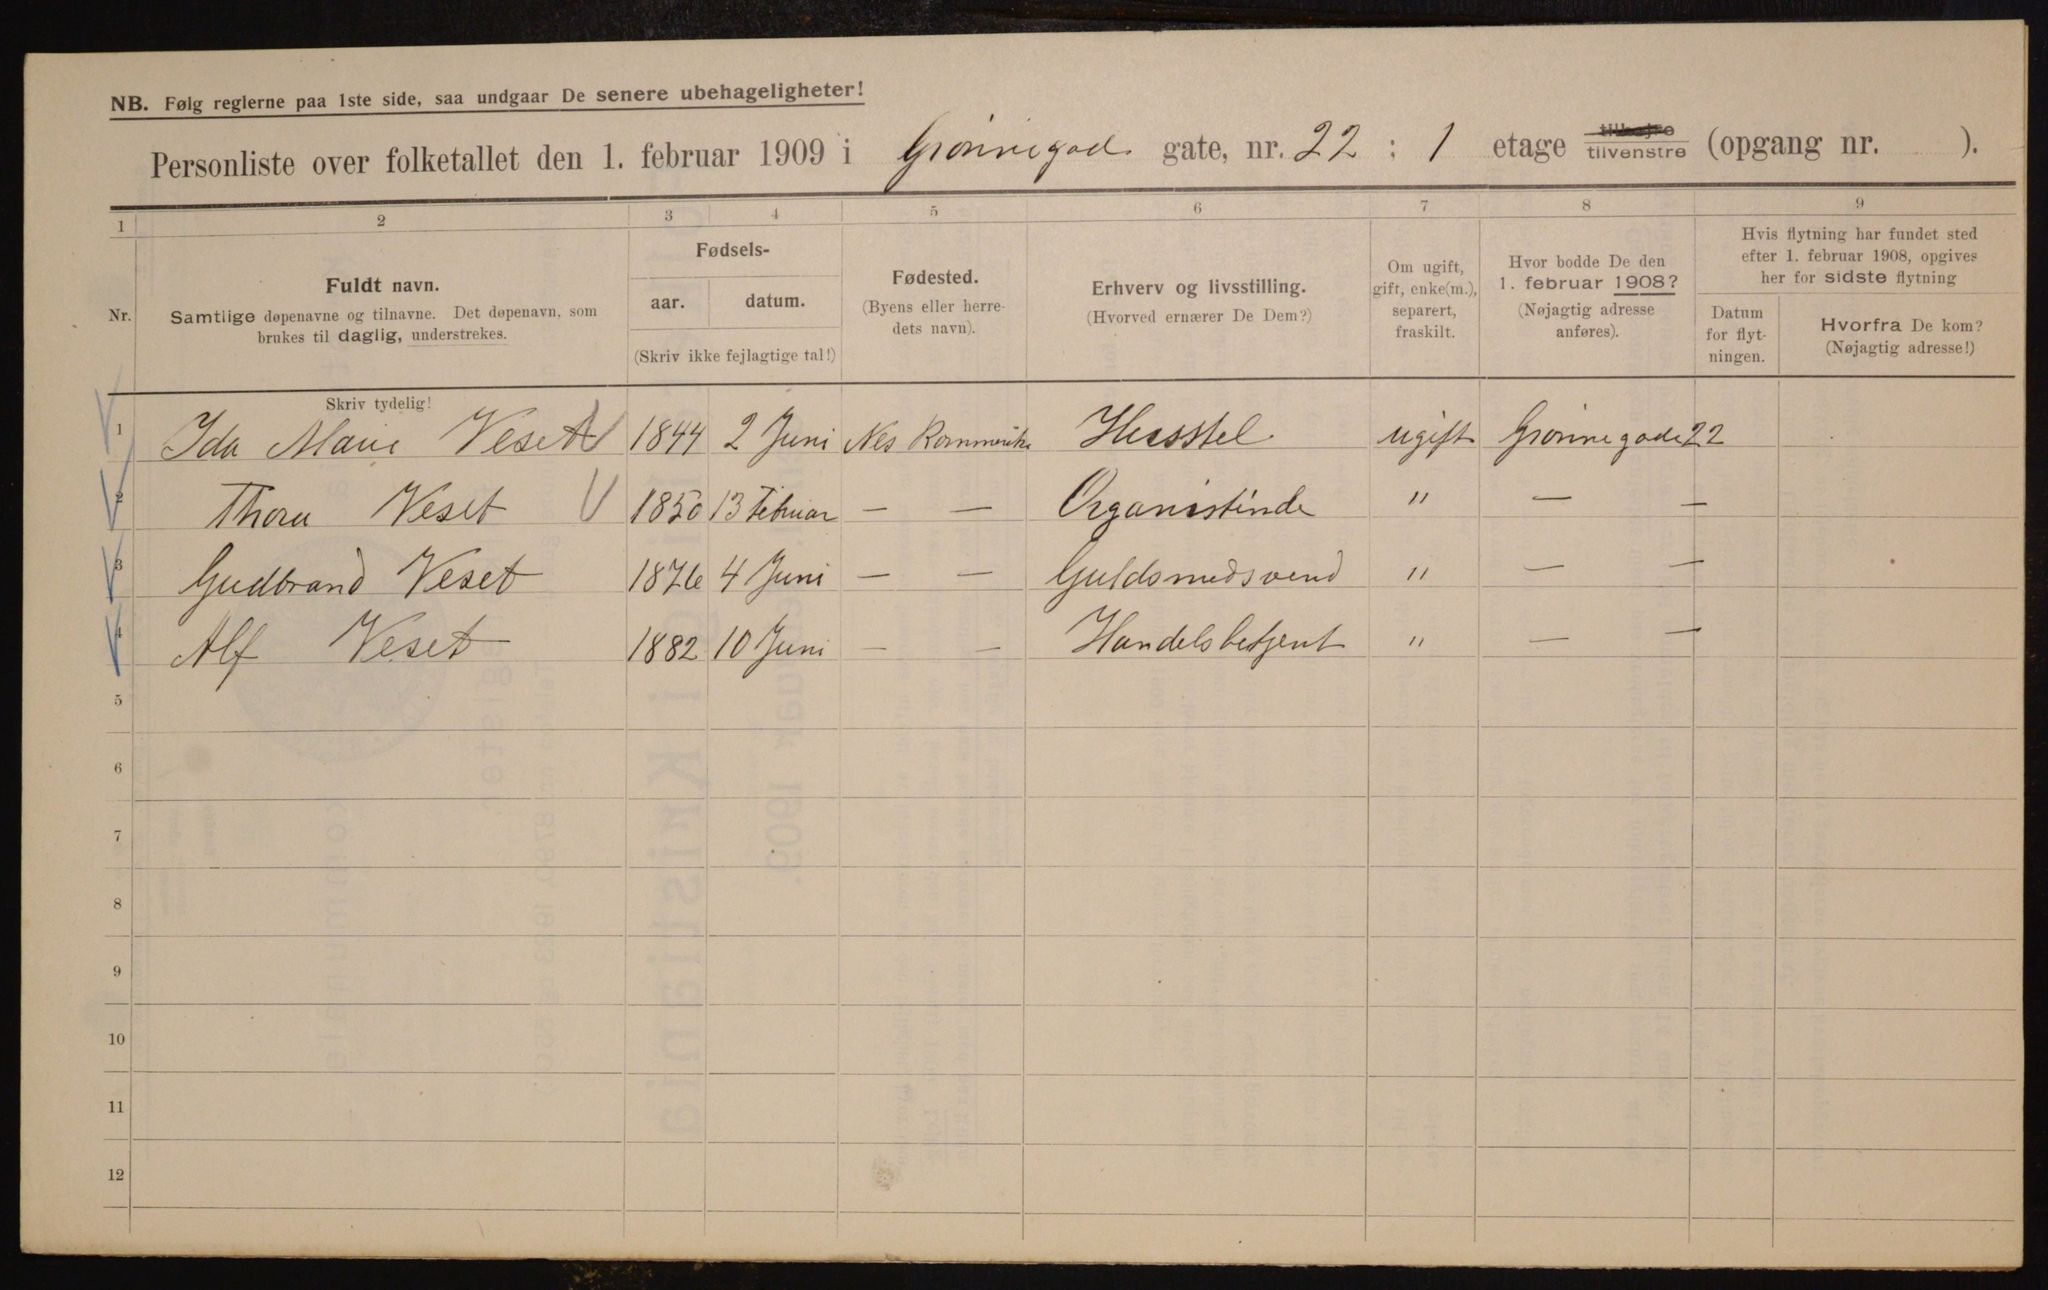 NB. Følg reglerne paa 1ste side, saa undgaar De senere ubehageligheter!
Personliste over folketallet den 1. februar 1909 i Grønnegad. gate, nr. 22 ; 1 etage tilhøjre tilvenstre (opgang nr. ).
1 2 3 4 5 6 7 8 9
Nr.
Fuldt navn.
Samtlige døpenavne og tilnavne. Det døpenavn, som
brukes til daglig, understrekes.
Skriv tydelig!
Fødsels-
aar. datum.
(Skriv ikke fejlagtige tal!)
Fødested.
(Byens eller herre-
dets navn).
Erhverv og livsstilling.
(Hvorved ernærer De Dem?)
Om ugift,
gift, enke(m.),
separert,
fraskilt.
Hvor bodde De den
1. februar 1908?
(Nøjagtig adresse
anføres).
Hvis flytning har fundet sted
efter 1. februar 1908, opgives
her for sidste flytning
Datum
for flyt-
ningen.
Hvorfra De kom?
(Nøjagtig adresse!)
1 Ida Marie Veset 1844 2 Juni Nes Romerike Husstel ugift Grønnegade 22
2 Thora Veset 1850 13 Februar — — Organistinde " — —
3 Gudbrand Veset 1876 4 Juni — — Guldsmedsvend " — —
4 Alf Veset 1882 10 Juni — — Handelsbetjent " — —
5
6
7
8
9
10
11
12